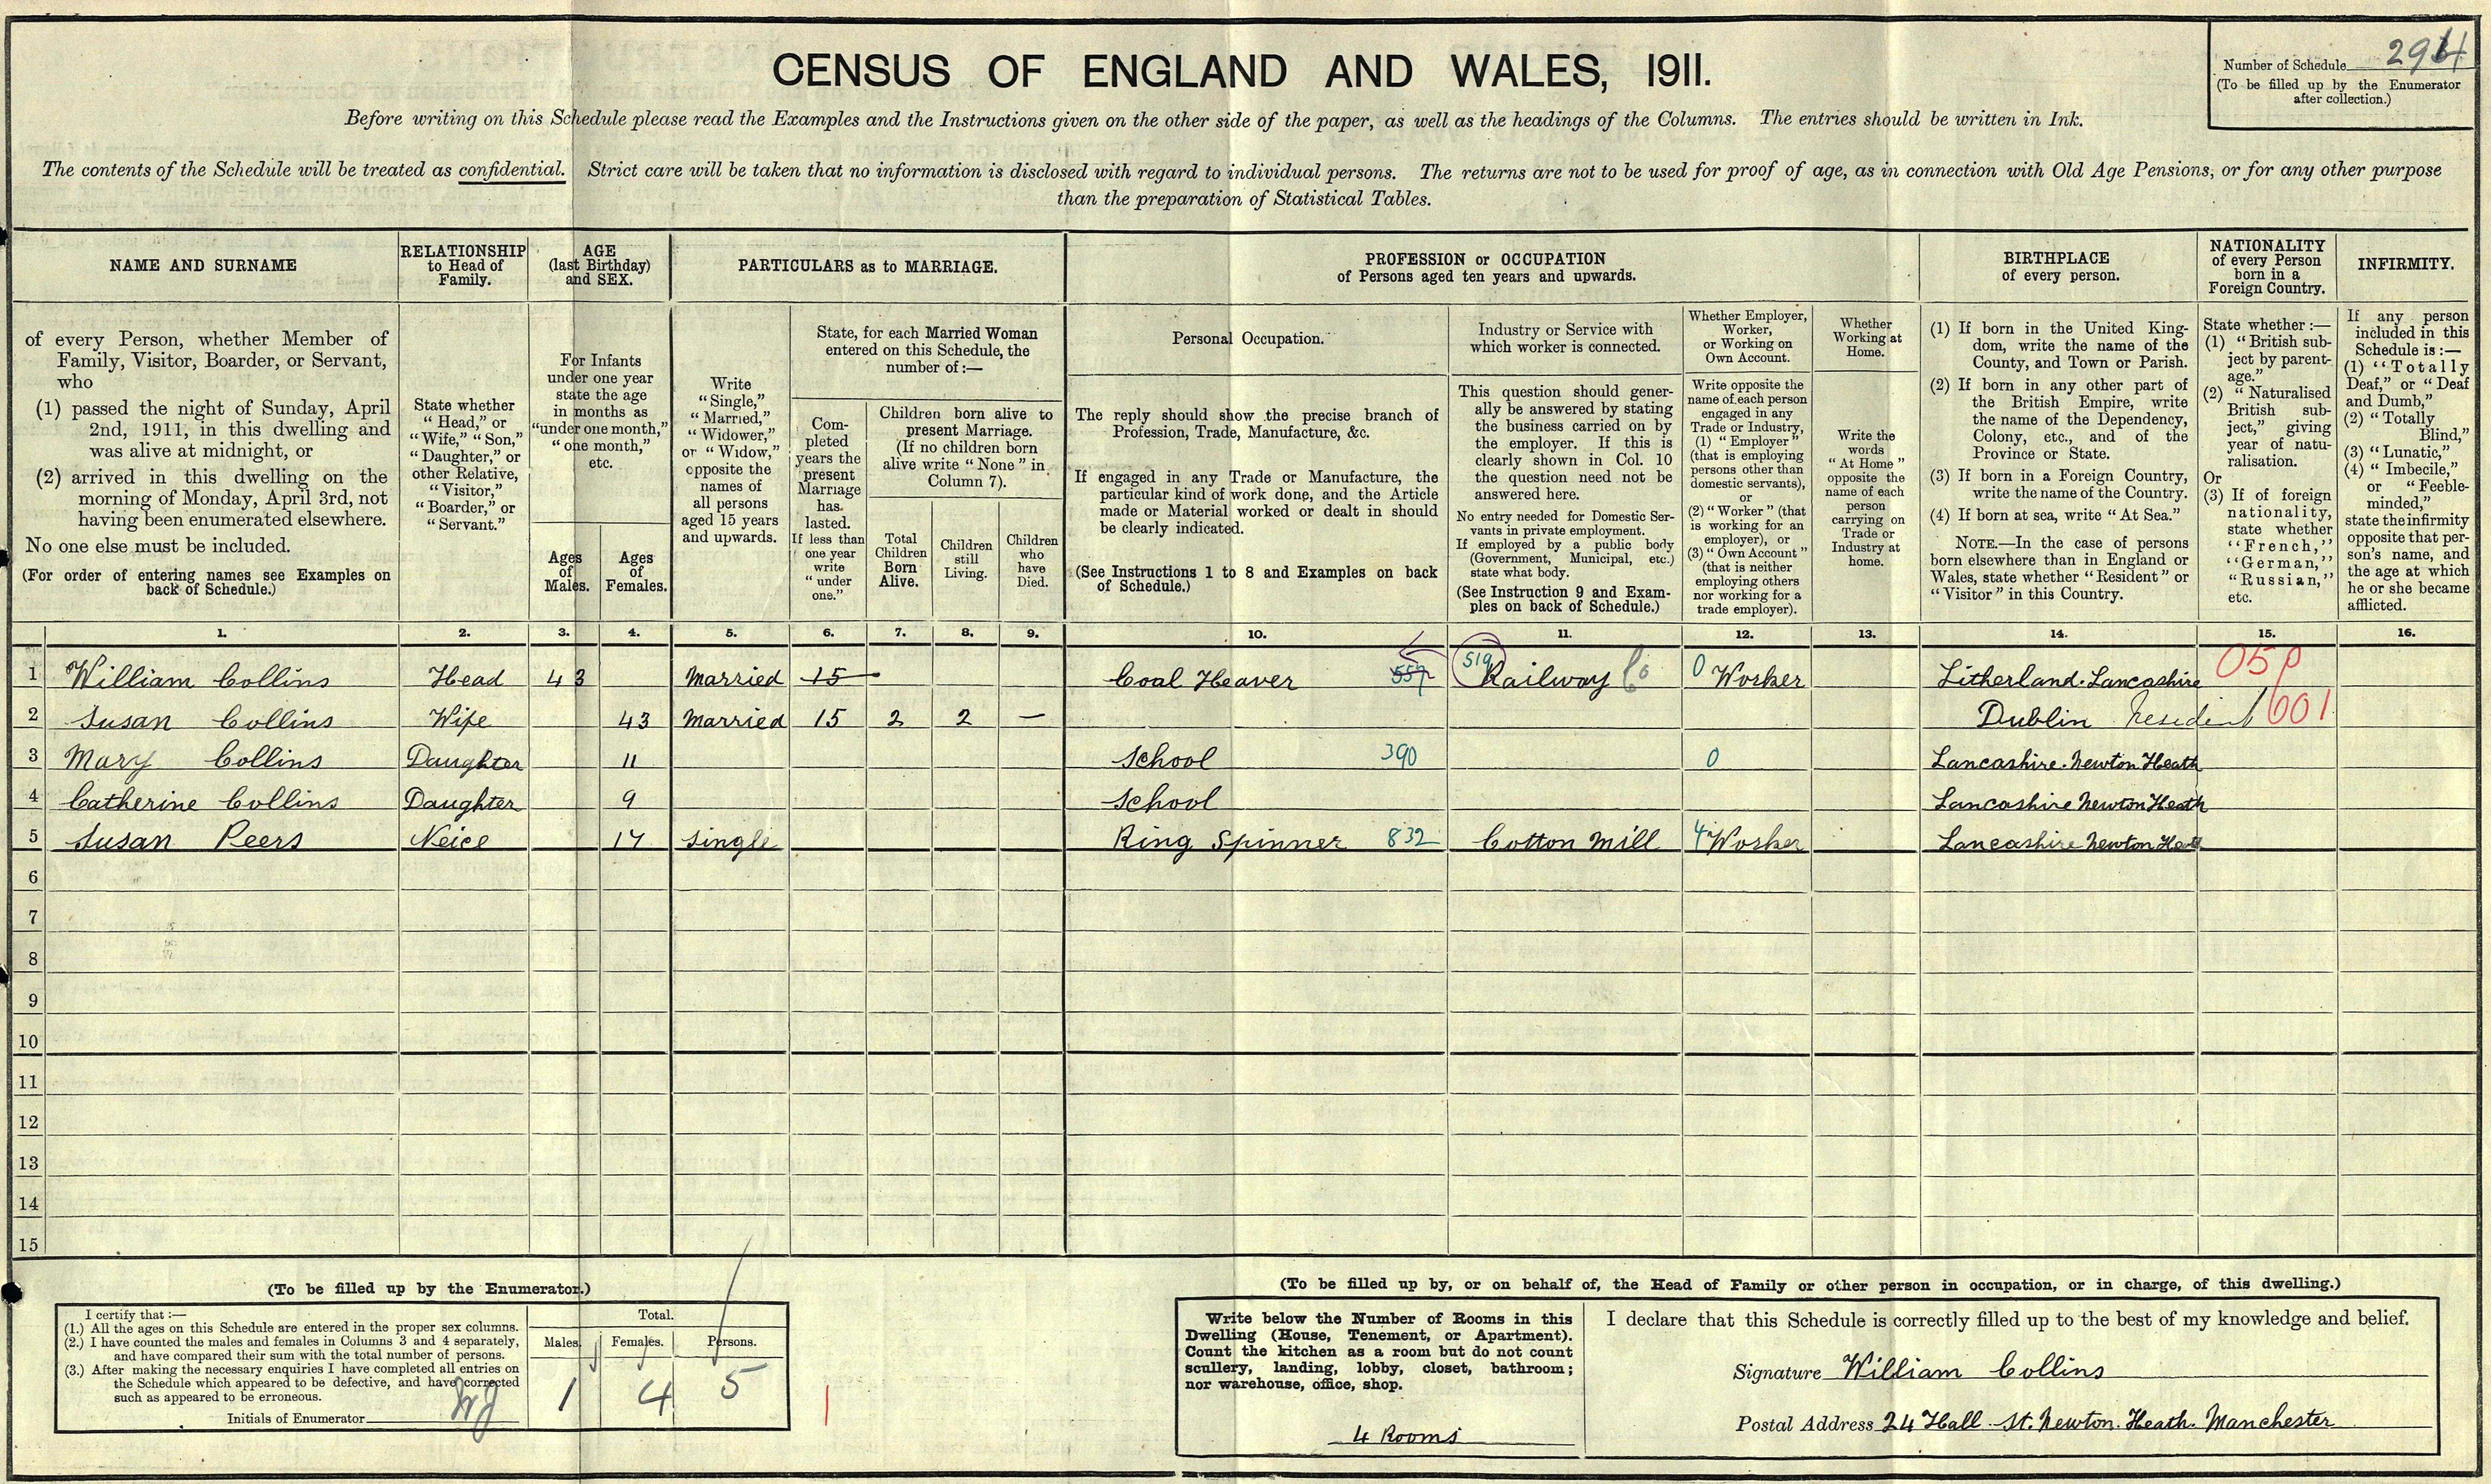 CENSUS OF ENGLAND AND WALES, 1911.
Number of Schedule
(To be filled up by the Enumerator
after collection.)
Before writing on this Schedule please read the Examples and the Instructions given on the other side of the paper, as well as the headings of the Columns. The entries should be written in Ink.
The contents of the Schedule will be treated as confidential. Strict care will be taken that no information is disclosed with regard to individual persons. The returns are not to be used for proof of age, as in connection with Old Age Pensions, or for any other purpose
than the preparation of Statistical Tables.
NAME AND SURNAME
of every Person, whether Member of
Family, Visitor, Boarder, or Servant,
who
(1) passed the night of Sunday, April
2nd, 1911, in this dwelling and
was alive at midnight, or
(2) arrived in this dwelling on the
morning of Monday, April 3rd, not
having been enumerated elsewhere.
No one else must be included.
(For order of entering names see Examples on
back of Schedule.)
RELATIONSHIP
to Head of
Family.
State whether
"Head," or
"Wife," "Son,"
"Daughter," or
other Relative,
"Visitor,"
"Boarder," or
"Servant."
AGE
(last Birthday)
and SEX.
For Infants
under one year
state the age
in months as
"under one month,"
"one month,"
etc.
Ages
of
Males.
Ages
of
Females.
PARTICULARS as to MARRIAGE.
Write
"Single,"
"Married,"
"Widower,"
or "Widow,"
opposite the
names of
all persons
aged 15 years
and upwards.
State, for each Married Woman
entered on this Schedule, the
number of:—
Com-
pleted
years the
present
Marriage
has
lasted.
If less than
one year
write
"under
one."
Children born alive to
present Marriage.
(If no children born
alive write "None" in
Column 7).
Total
Children
Born
Alive.
Children
still
Living.
Children
who
have
Died.
PROFESSION or OCCUPATION
of Persons aged ten years and upwards.
Personal Occupation.
The reply should show the precise branch of
Profession, Trade, Manufacture, &c.
If engaged in any Trade or Manufacture, the
particular kind of work done, and the Article
made or Material worked or dealt in should
be clearly indicated.
(See Instructions 1 to 8 and Examples on back
of Schedule.)
Industry or Service with
which worker is connected.
This question should gener-
ally be answered by stating
the business carried on by
the employer. If this is
clearly shown in Col. 10
the question need not be
answered here.
No entry needed for Domestic Ser-
vants in private employment.
If employed by a public body
(Government, Municipal, etc.)
state what body.
(See Instruction 9 and Exam-
ples on back of Schedule.)
Whether Employer,
Worker,
or Working on
Own Account.
Write opposite the
name of each person
engaged in any
Trade or Industry,
(1) "Employer"
(that is employing
persons other than
domestic servants),
or
(2) "Worker" (that
is working for an
employer), or
(3) "Own Account"
(that is neither
employing others
nor working for a
trade employer).
Whether
Working at
Home.
Write the
words
"At Home"
opposite the
name of each
person
carrying on
Trade or
Industry at
home.
BIRTHPLACE
of every person.
(1) If born in the United King-
dom, write the name of the
County, and Town or Parish.
(2) If born in any other part of
the British Empire, write
the name of the Dependency,
Colony, etc., and of the
Province or State.
(3) If born in a Foreign Country,
write the name of the Country.
(4) If born at sea, write "At Sea."
NOTE.—In the case of persons
born elsewhere than in England or
Wales, state whether "Resident" or
"Visitor" in this Country.
NATIONALITY
of every Person
born in a
Foreign Country.
State whether:—
(1) "British sub-
ject by parent-
age."
(2) "Naturalised
British sub-
ject," giving
year of natu-
ralisation.
Or
(3) If of foreign
nationality,
state whether
"French,"
"German,"
"Russian,"
etc.
INFIRMITY.
If any person
included in this
Schedule is:—
(1) "Totally
Deaf," or "Deaf
and Dumb,"
(2) "Totally
Blind,"
(3) "Lunatic,"
(4) "Imbecile,"
or "Feeble-
minded,"
state the infirmity
opposite that per-
son's name, and
the age at which
he or she became
afflicted.
1. 2. 3. 4. 5. 6. 7. 8. 9. 10. 11. 12. 13. 14. 15. 16.
1 William Collins Head 43 Married 15 Coal Heaver 519 Railway Co 0 Worker Litherland. Lancashire
2 Susan Collins Wife 43 Married 15 2 2 — Dublin Resident 601
3 Mary Collins Daughter 11 School 390 0 Lancashire. Newton Heath
4 Catherine Collins Daughter 9 School Lancashire Newton Heath
5 Susan Peers Neice 17 Single Ring Spinner 832 Cotton Mill 4 Worker Lancashire Newton Heath
6
7
8
9
10
11
12
13
14
15
(To be filled up by the Enumerator.)
I certify that:—
(1.) All the ages on this Schedule are entered in the proper sex columns.
(2.) I have counted the males and females in Columns 3 and 4 separately,
and have compared their sum with the total number of persons.
(3.) After making the necessary enquiries I have completed all entries on
the Schedule which appeared to be defective, and have corrected
such as appeared to be erroneous.
Initials of Enumerator
Total.
Males. Females. Persons.
1 4 5
(To be filled up by, or on behalf of, the Head of Family or other person in occupation, or in charge, of this dwelling.)
Write below the Number of Rooms in this
Dwelling (House, Tenement, or Apartment).
Count the kitchen as a room but do not count
scullery, landing, lobby, closet, bathroom;
nor warehouse, office, shop.
4 Rooms
I declare that this Schedule is correctly filled up to the best of my knowledge and belief.
Signature William Collins
Postal Address 24 Hall St. Newton. Heath. Manchester